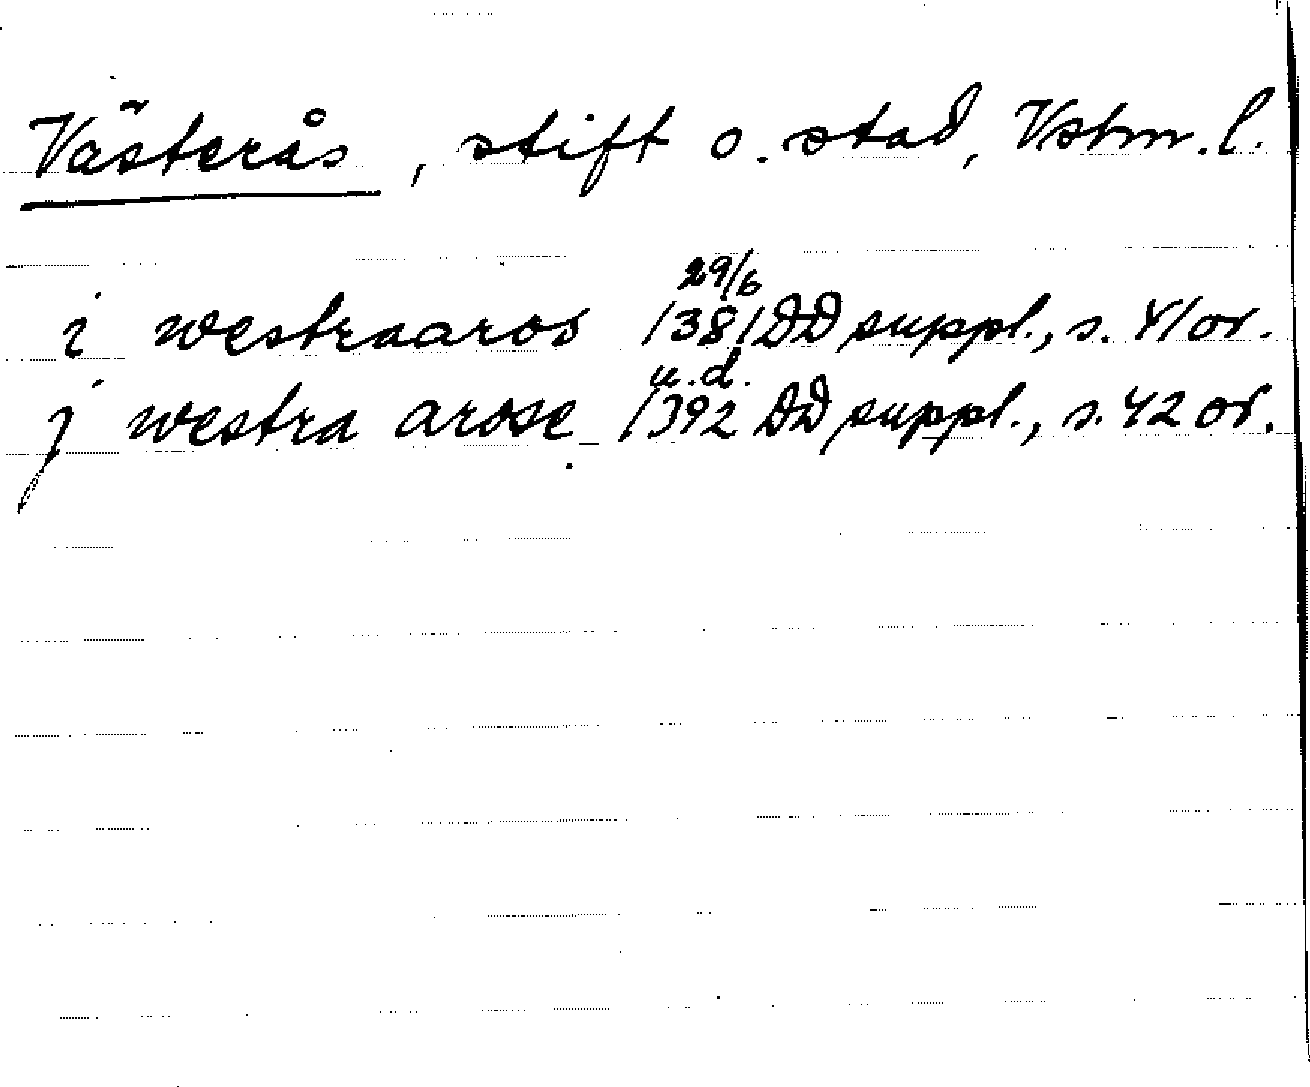 Västerås, stift o. stad, Vstm. l.
i westraaros 29/6 1381 DD suppl., s. 41 or.
j westra arose u.d. 1392 DD suppl., s. 42 or.